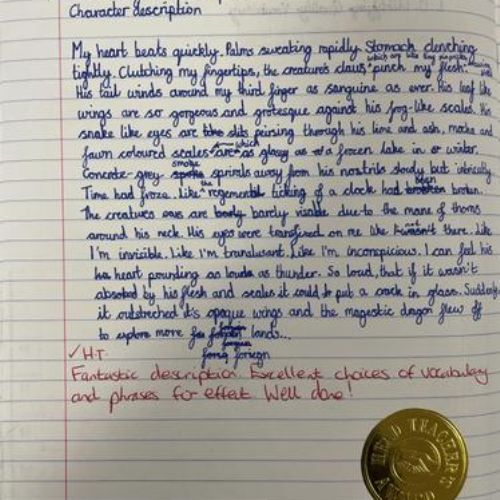 Character description
My heart beats quickly. Palms sweating rapidly. Stomach clenching
tightly. Clutching my fingertips, the creature's claws which are like tiny pinch my flesh.
His tail winds around my third finger as sanguine as ever. His leaf like
wings are so gorgeous and grotesque against his frog-like scales. His
snake like eyes are slits peirsing through his lime and ash, mocha and
fawn coloured scales which are as glassy as a frozen lake in winter.
Concrete-grey smoke sprirals away from his nostrils slowly but intricatly
Time had froze. Like the regemental ticking of a clock had been broken.
The creatures ears are barely visable due to the mane of thorns
around his neck. His eyes were transfixed on me like I wasn't there. Like
I'm invisible. Like I'm translusant. Like I'm inconspicious. I can feel his
heart pounding as loud as thunder. So loud, that if it wasn't
absorbed by his flesh and scales it could put a crack in glass. Suddenly
it outstreched it's opaque wings and the magestic dragon flew off
to explore more lands...
foreign
✓ H.T.
Fantastic description. Excellent choices of vocabulary
and phrases for effect. Well done!
HEAD TEACHER'S